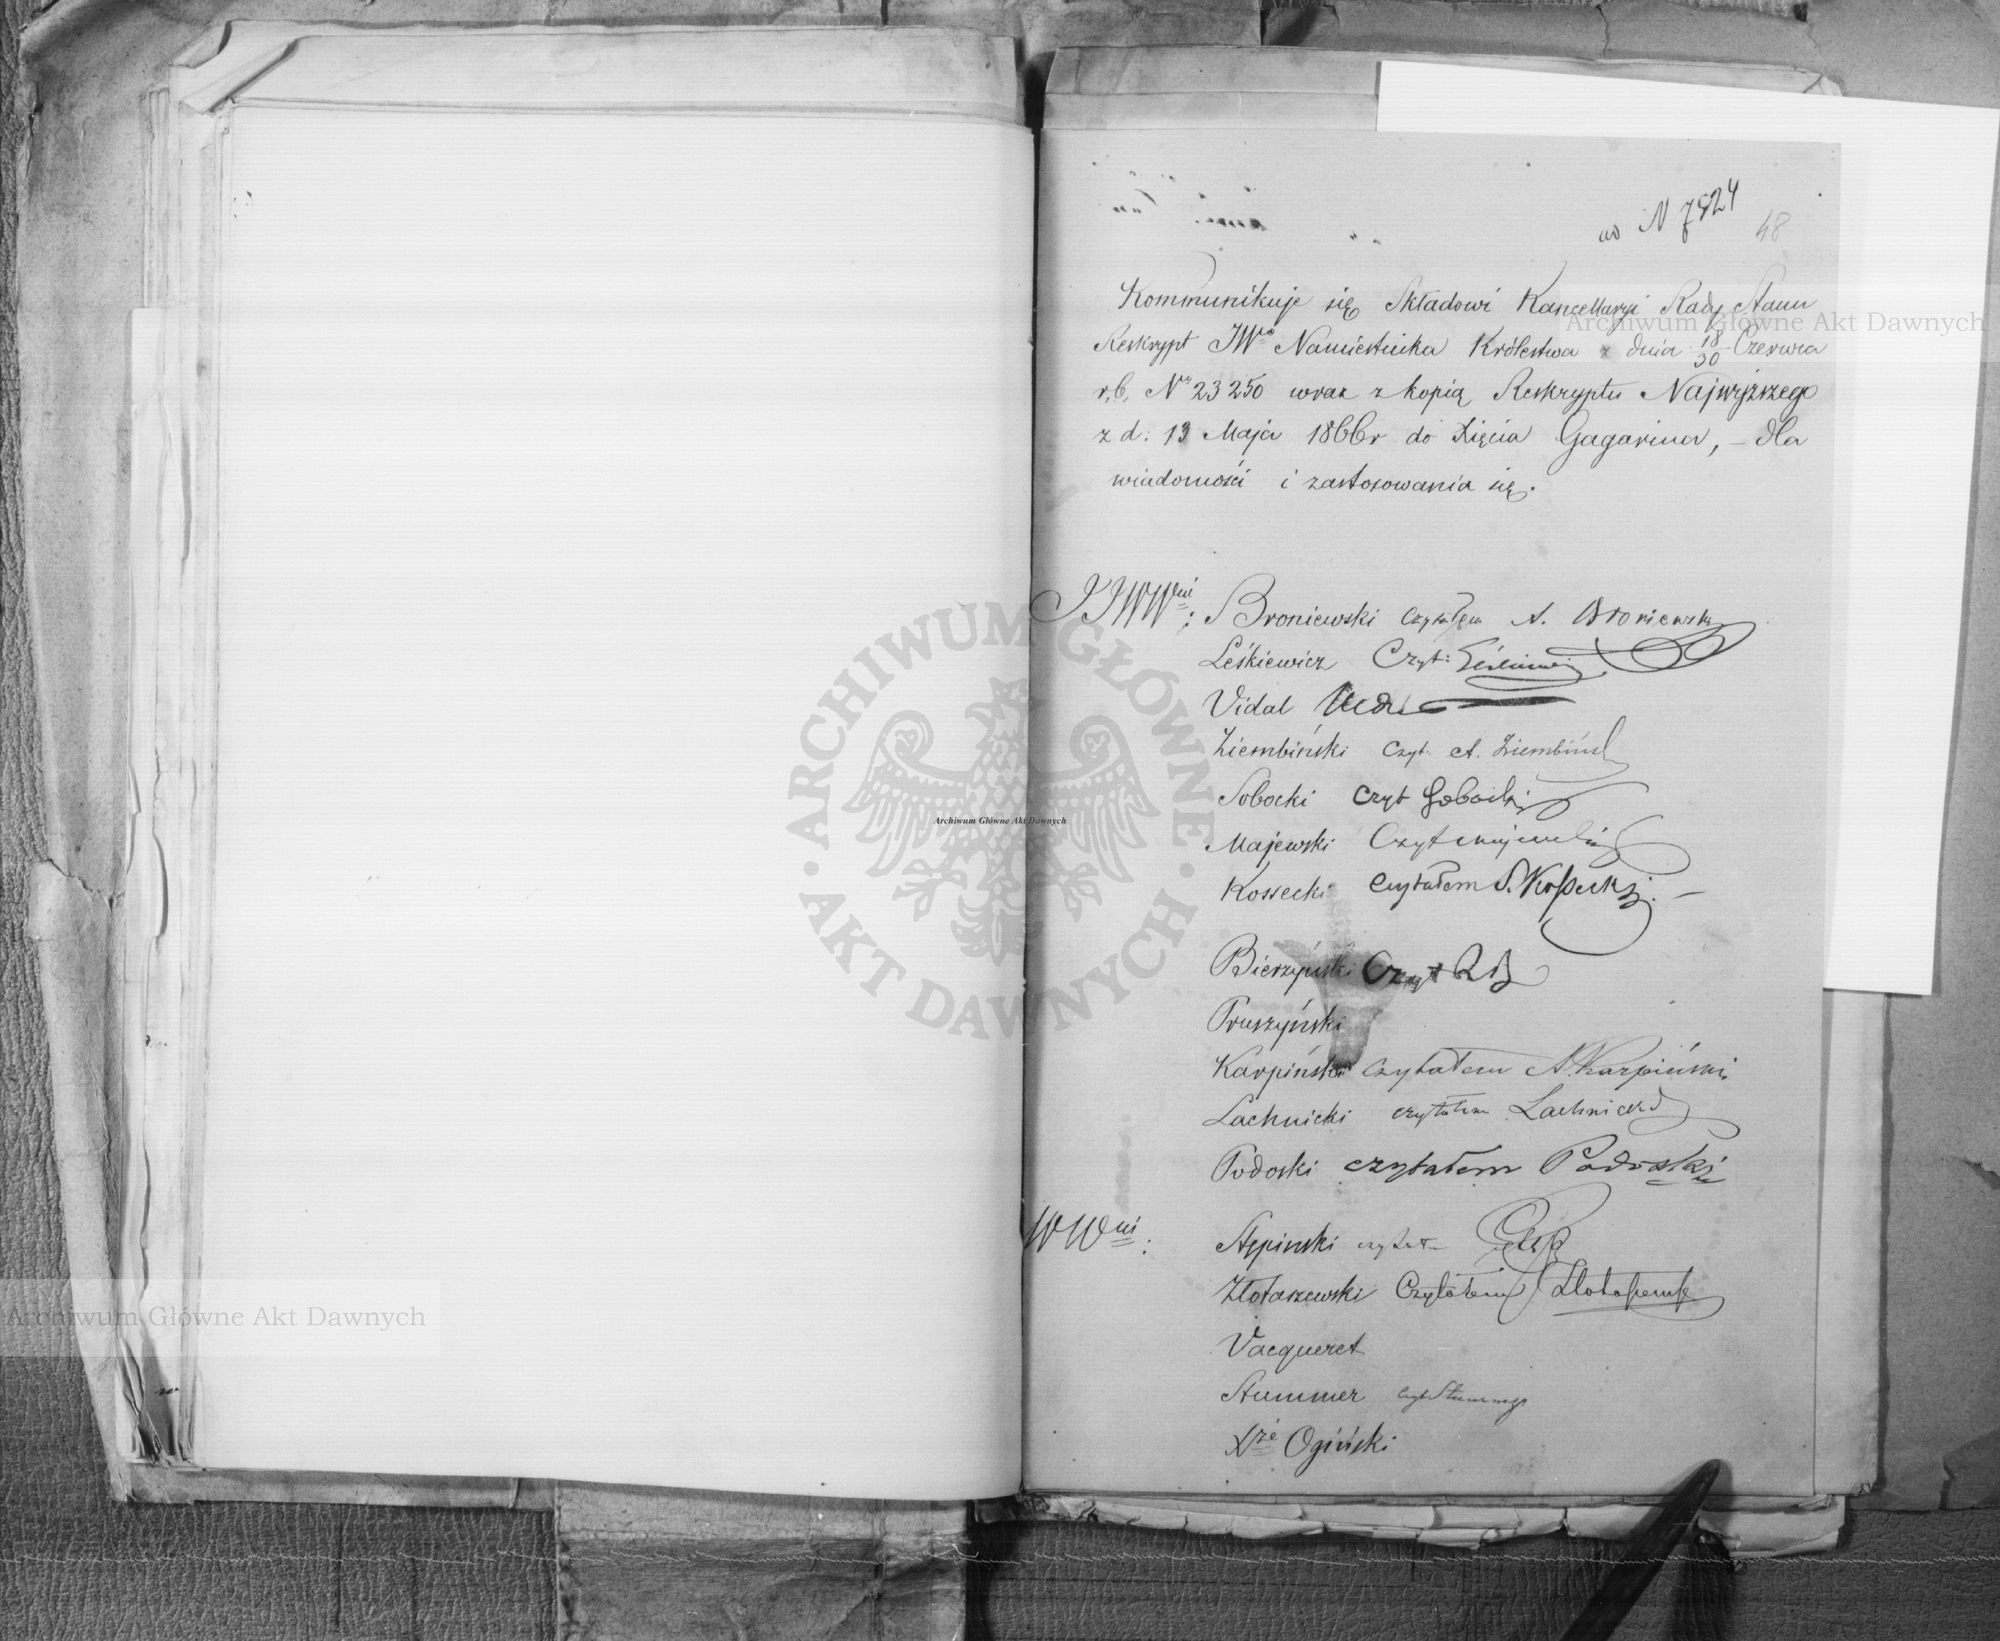 ad N 7824
48
Kommunikuje się Składowi Kancellaryi Rady Stanu
Reskrypt JWo Namiestnika Królestwa z dnia 18/30 Czerwca
r.b. Nr 23250 wraz z kopią Reskryptu Najwyższego
z d: 13 Maja 1866r do Xięcia Gagarina, – dla
wiadomości i zastosowania się.
JJWWni: Broniewski Czytałem A. Broniewski
Leśkiewicz Czyt: Leśkiewicz
Vidal Vidal
Ziembiński Czyt. A. Ziembiński
Sobocki Czyt Sobocki
Majewski Czyt Majewski
Kossecki Czytałem S. Kossecki.
Bierzyński Czyt
Pruszyński
Karpiński Czytałem A. Karpiński
Lachnicki czytałem Lachnicki
Podoski czytałem Podoski
WWni: Stępinski czytałem
Złotaszewski Czytałem Złotaszewski
Vacqueret
Stummer czyt Stummer
Xże Ogiński
Archiwum Główne Akt Dawnych
Archiwum Główne Akt Dawnych
Archiwum Główne Akt Dawnych
ARCHIWUM GŁÓWNE · AKT DAWNYCH ·